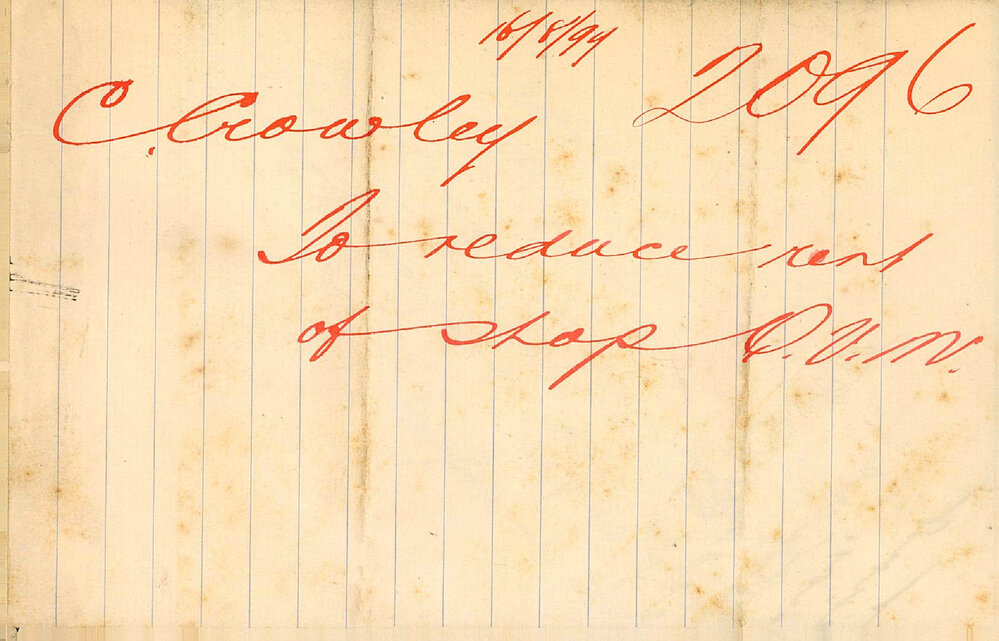 16/8/94
C. Crowley 2096
To reduce rent
of shop Q.V.M.